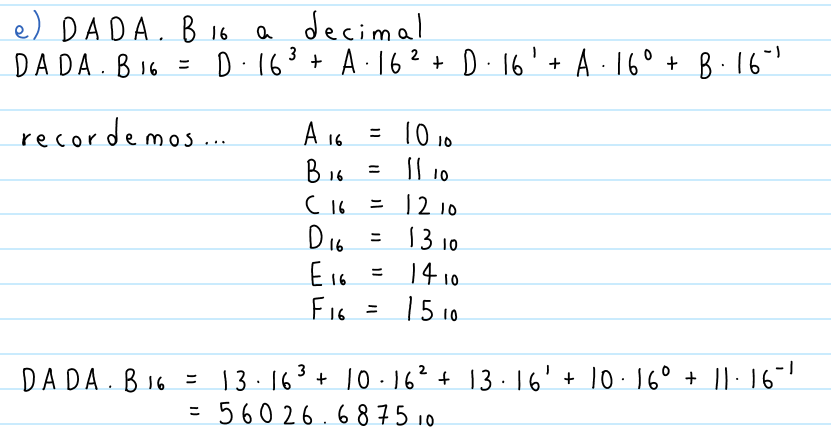 e) DADA.B₁₆ a decimal
DADA.B₁₆ = D·16³ + A·16² + D·16¹ + A·16⁰ + B·16⁻¹
recordemos... A₁₆ = 10₁₀
B₁₆ = 11₁₀
C₁₆ = 12₁₀
D₁₆ = 13₁₀
E₁₆ = 14₁₀
F₁₆ = 15₁₀
DADA.B₁₆ = 13·16³ + 10·16² + 13·16¹ + 10·16⁰ + 11·16⁻¹
= 56026.6875₁₀